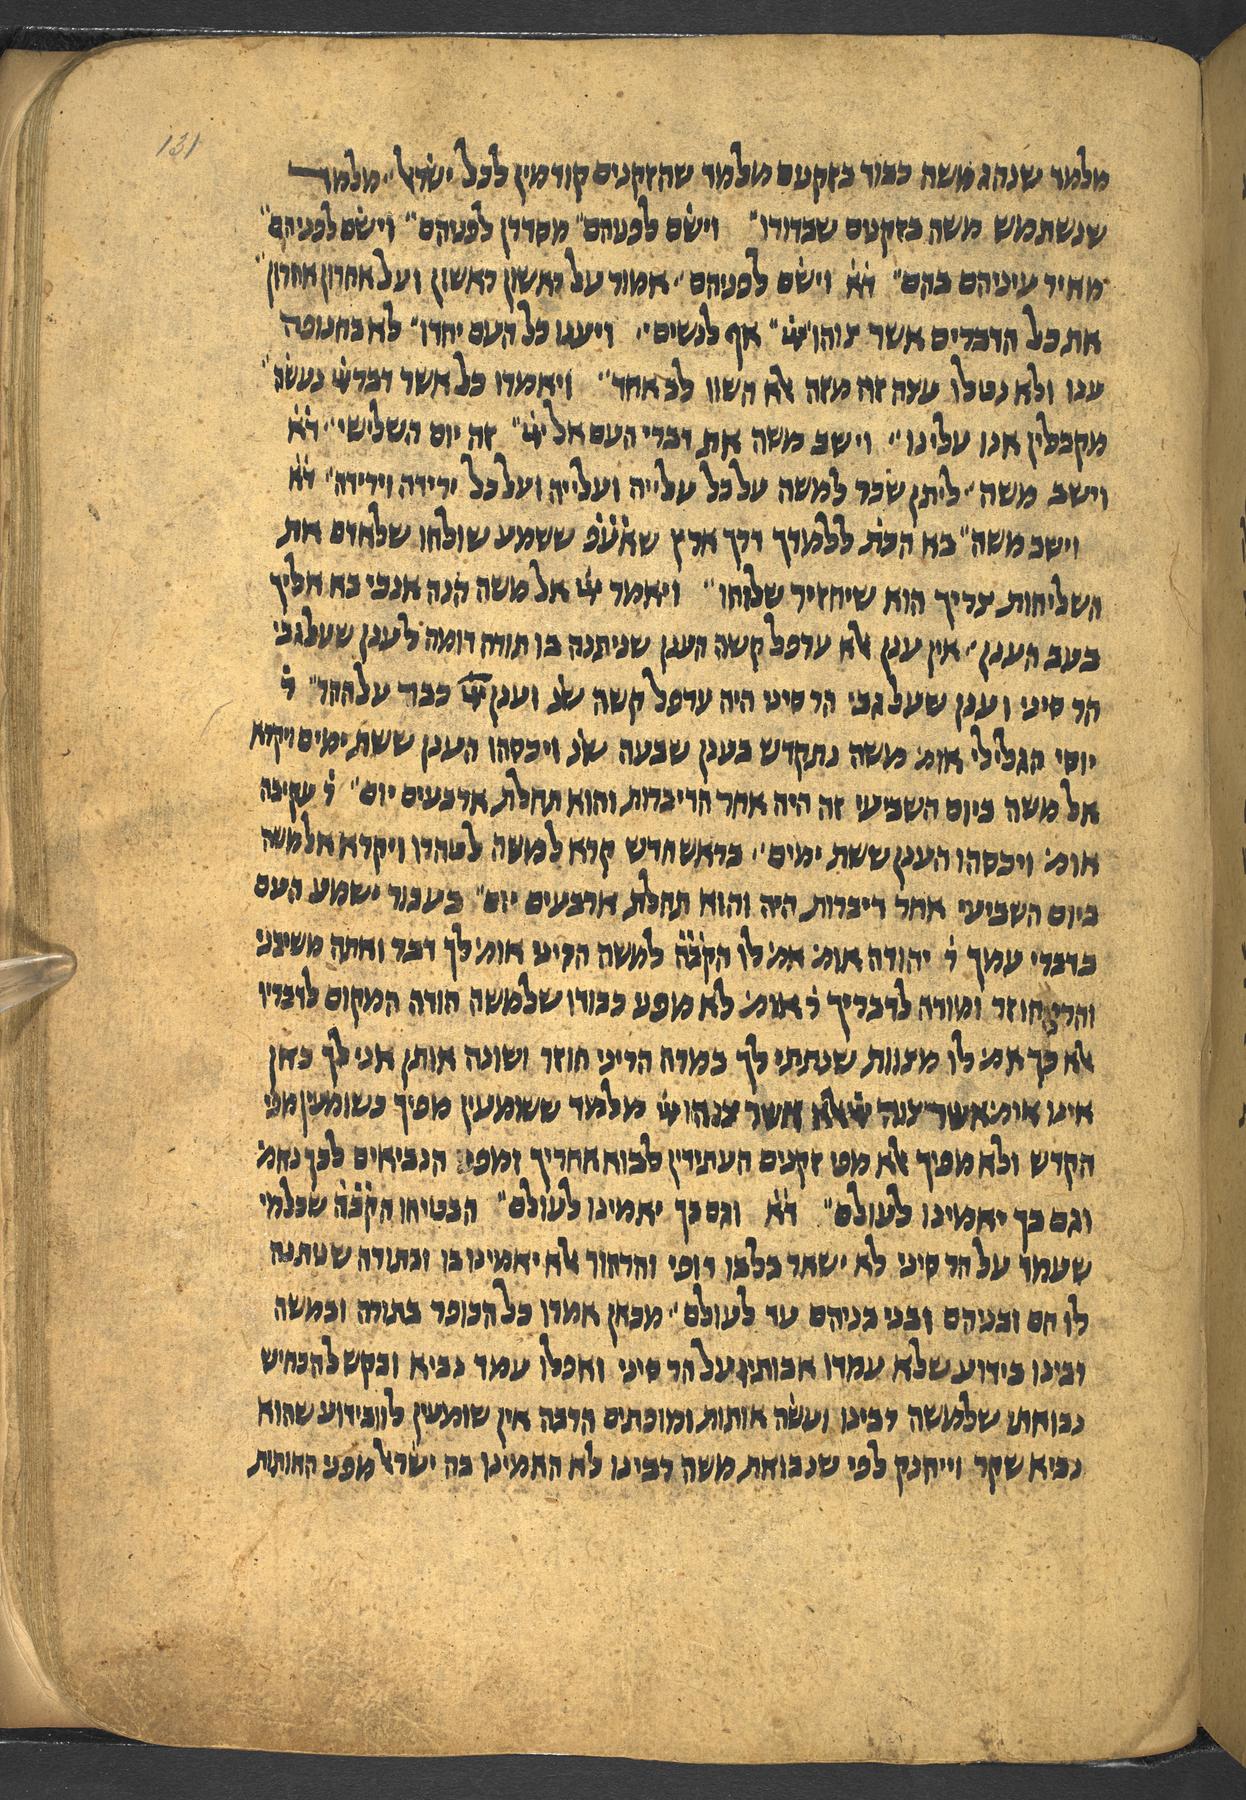 131
מלמד שנהג משה כבוד בזקנים מלמד שהזקנים קודמין לכל ישראל״ מלמד
שנשתמש משה בזקנים שבדורו״ וישם לפניהם״ מסדרן לפניהם״ וישם לפניהם״
מאיר עיניהם בהם״ ד̇א̇ וישם לפניהם״ אמור על ראשון ראשון ועל אחרון אחרון״
את כל הדברים אשר צוהו ייי״ אף לנשים״ ויענו כל העם יחדו״ לא בחנופה
ענו ולא נטלו עצה זה מזה אלא השוו לב אחד״ ויאמרו כל אשר דבר ייי נעשה״
מקבלין אנו עלינו״ וישב משה את דברי העם אל ייי״ זה יום השלישי״ ד̇א̇
וישב משה״ ליתן שכר למשה על כל עלייה ועלייה ועל כל ירידה וירידה״ ד̇א̇
וישב משה״ בא הכת׳ ללמדך דרך ארץ שאע̇פ̇ ששמע שולחו שלאדם את
השליחות צריך הוא שיחזיר שלוחו״ ויאמר ייי אל משה הנה אנכי בא אליך
בעב הענן״ אין ענן אלא ערפל קשה הענן שניתנה בו תורה דומה לענן שעל גבי
הר סיני וענן שעל גבי הר סיני היה ערפל קשה שנ׳ וענן ייי כבד על ההר״ ר׳
יוסי הגלילי אומ׳ משה נתקדש בענן שבעה שנ׳ ויכסהו הענן ששת ימים ויקרא
אל משה ביום השביעי זה היה אחר הדיברות והוא תחלת ארבעים יום״ ר׳ עקיבה
אומ׳ ויכסהו הענן ששת ימים״ בראש חדש קרא למשה לטהרו ויקרא אל משה
ביום השביעי אחר דיברות היה והוא תחלת ארבעים יום״ בעבור ישמע העם
בדברי עמך ר׳ יהודה אומ׳ אמ׳ לו הקב̇ה̇ למשה הריני אומ׳ לך דבר ואתה משיבני
והריני חוזר ומודה לדבריך ר׳ אומ׳ לא מפני כבודו שלמשה הודה המקום לדבריו
אלא כך אמ׳ לו מצוות שנתתי לך במרה הריני חוזר ושונה אותן אני לך כאן
אינו אומ׳ אשר צוה ייי אלא אשר צוהו ייי מלמד ששומעין מפיך כשומעין מפי
הקדש ולא מפיך אלא מפי זקנים העתידין לבוא אחריך ומפי הנביאים לכך נאמ׳
וגם בך יאמינו לעולם״ ד̇א̇ וגם בך יאמינו לעולם״ הבטיחו הקב̇ה̇ שכל מי
שעמד על הר סיני לא ישאר בלבו דופי והרהור אלא יאמינו בו ובתורה שנתנה
לו הם ובניהם ובני בניהם עד לעולם״ מכאן אמרו כל הכופר בתורה ובמשה
רבינו בידוע שלא עמדו אבותיו על הר סיני ואפלו עמד נביא ובקש להכחיש
נבואתו שלמשה רבינו ועשה אותות ומופתים הרבה אין שומעין לו ובידוע שהוא
נביא שקר וייחנק לפי שנבואת משה רבינו לא האמינו בה ישראל מפני האותות